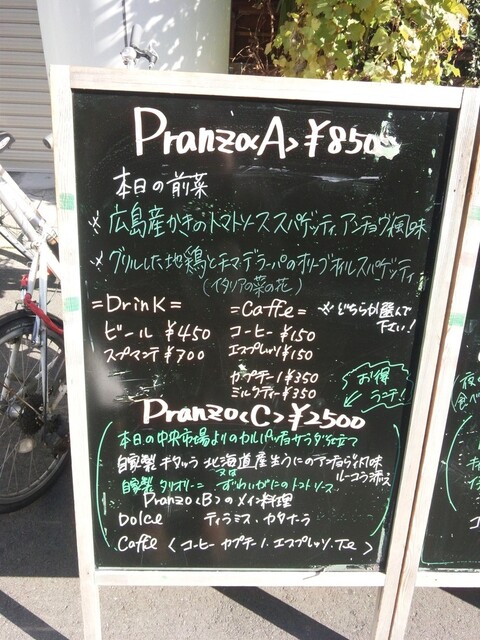 Pranzo<A> ¥850
本日の前菜
※広島産かきのトマトソーススパゲッティ アンチョヴィ風味
※グリルした地鶏とチーマ・デラーパのオリーブオイルスパゲッティ
(イタリアの菜の花)
=Drink=
ビール ¥450
スプマンテ ¥700
=Caffe=
コーヒー ¥150
エスプレッソ ¥150
カプチーノ ¥350
ミルクティー ¥350
※どちらか選んで
下さい!
お得
ランチ!
Pranzo<C> ¥2500
本日の中央市場よりのカルパッチョ サラダ仕立て
自家製 キタッラ 北海道産生うにのアンチョヴィ風味
ルーコラ添え
又は
自家製 タリオリーニ ずわいがにのトマトソース
Pranzo<B>のメイン料理
Dolce ティラミス・カタナーラ
Caffe <コーヒー・カプチーノ・エスプレッソ・Te>
夜の
食べ